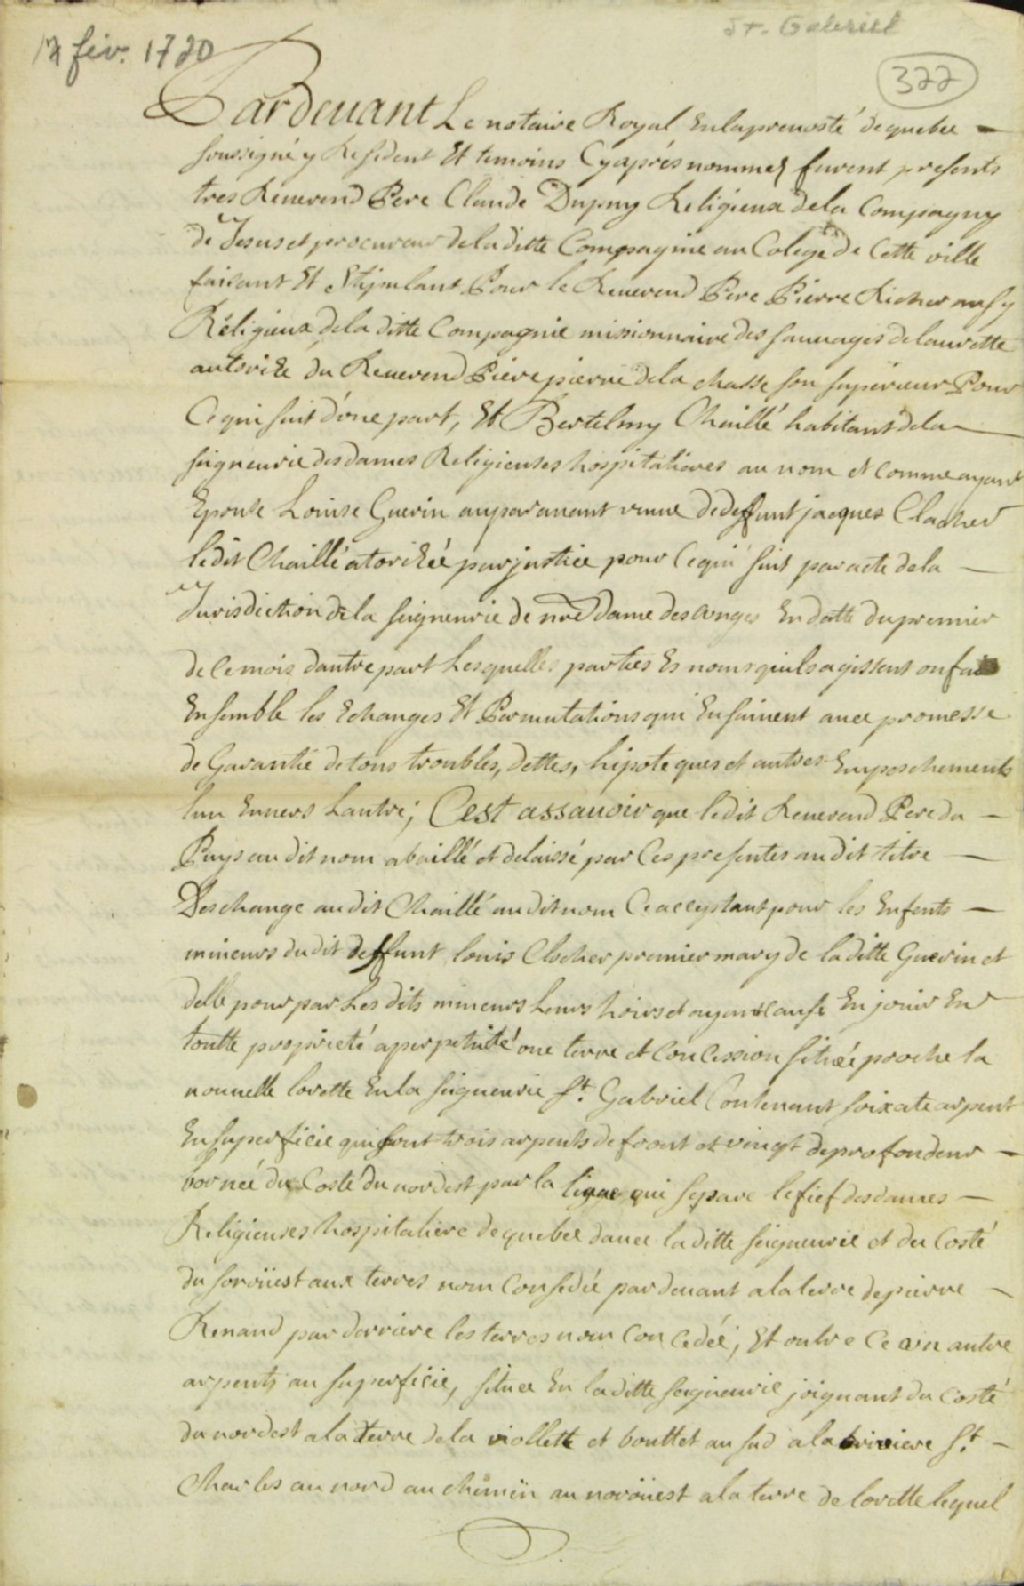 St. Gabriel
17 fev. 1720
322
Pardeuant Le notaire Royal Enlapreuosté dequebec
soussigné y Resident Et temoins Cyaprés nommez furent presents
tres Reuerend Pere Claude Dupuy Religieux dela Compagny
de Jesus et procureur deladitte Compagnie au Colege de Cette ville
faisant Et Stipulant Pour le Reuerend Pere Pierre Richer ausy
Réligieux dela ditte Compagnie missionnaire des sauuages delaurette
autorizé du Reuerend Piere pierre dela chasse son superieur Pour
Cequi suit d'une part, Et Bertelmy Chaillé habitant dela
seigneurie desdames Religieuses hospitalieres au nom et comme ayant
Epousé Louise Guerin auparauant veuue dedeffunt jacques Clocher
ledit Chaillé atorizéé parjustice pour Cequi suit paracte dela
Jurisdiction dela seigneurie de nre dame desanges En datte dupremier
de Cemois dautre part Lesquelles parties Es noms quilsagissent onfait
Ensemble les Echanges Et Permutations qui Ensuiuent auec promesse
de Garantie detous troubles, dettes, hipoteques et autres Empeschements
lun Enuers Lautre; Cest assauoir que ledit Reuerend Pere du
Puys audit nom abaillé et delaissé par Ces presentes audit titre
Deschange audit Chaillé auditnom Ceacceptant pour les Enfents
mineurs dudit deffunt louis Clocher premier mary de laditte Guerin et
delle pour par Les dits mineurs Leurs hoirs et ayant cause En jouir En
toutte proprieté aperpetuité une terre et Concession sitüéé proche la
nouuelle lorette Enla seigneurie St. Gabriel Contenant soixate arpent
Ensuperficie qui font trois arpents defront et vingt deprofondeur
bornéé du Costé du nordest par la ligne qui separe lefief desdames
Religieuses hospitaliere dequebec dauec laditte seigneurie et du Costé
du soroüest aux terres nom Consedéé pardeuant alaterre depierre
Renaud par derriere les terres nom Concedéé, Et outre Ce un autre
arpents au superficie, situee En laditte seigneurie joignant du Costé
du nordest ala terre dela viollette et bouttet au sud ala riuiere St.
Charles au nord au chemin au noroüest ala terre de lorette lequel